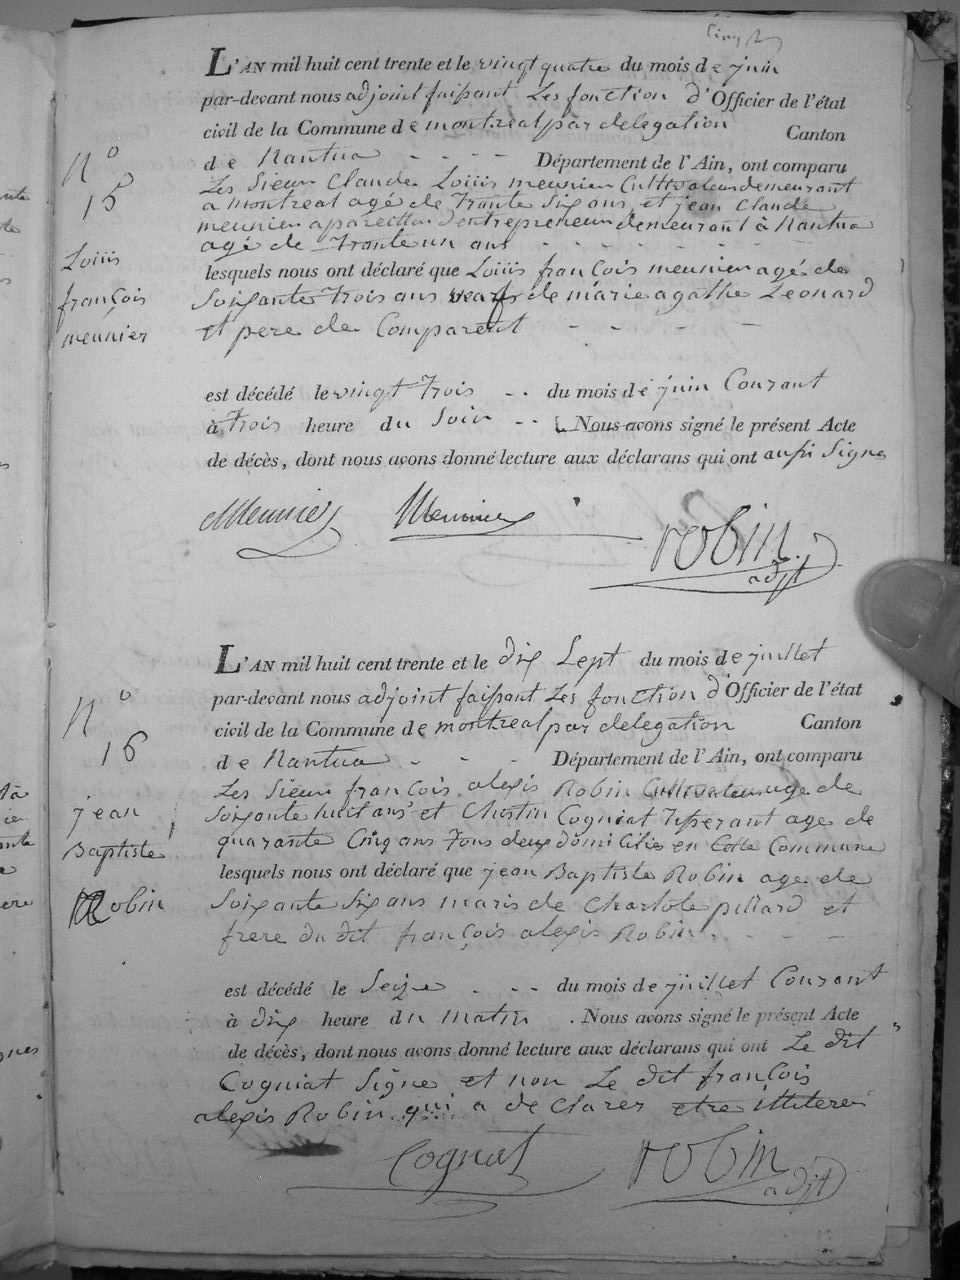 L'AN mil huit cent trente et le vingt quatre du mois de juin
par-devant nous adjoint faissant Les fonction d'Officier de l'état
civil de la Commune de montreal par delegation Canton
de Nantua - - - - Département de l'Ain, ont comparu
N° 15
Les Sieur Claude Loüis meunier Cultivateur demeurant
a montreal agé de Trante Six ans, et jean Claude
meunier d'entrepreneur demeurant à Nantua
agé de Trante un ans - - - - - - -
Loüis
françois
meunier
lesquels nous ont déclaré que Loüis françois meunier agé de
Soixante Trois ans veuf de marie agathe Leonard
et pere de Comparent - - - -
est décédé le vingt Trois - - du mois de juin Courant
à Trois heure du Soir - - Nous avons signé le présent Acte
de décès, dont nous avons donné lecture aux déclarans qui ont aussi Signe
Meunier Meunier Robin
adjt
L'AN mil huit cent trente et le dix Sept du mois de juillet
par-devant nous adjoint faissant Les fonction d'Officier de l'état
civil de la Commune de montreal par delegation Canton
de Nantua - - - Département de l'Ain, ont comparu
N° 16
Les Sieur françois alexis Robin Cultivateur age de
Soixante huit ans et Cogniat Tisserant age de
quarante Cinq ans Tous deux domiciliés en Cette Commune
jean
Baptiste
Robin
lesquels nous ont déclaré que jean Baptiste Robin age de
Soixante Six ans maris de Charlote pillard et
frere du dit françois alexis Robin. - - -
est décédé le Seize - - - du mois de juillet Courant
à dix heure du matin . Nous avons signé le présent Acte
de décès, dont nous avons donné lecture aux déclarans qui ont Le dit
Cogniat Signe et non Le dit françois
alexis Robin qui a declarer etre illitere
Cogniat Robin
adjt